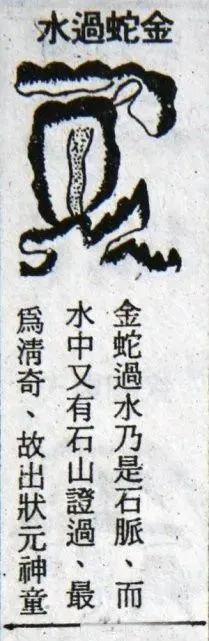 金蛇過水
金蛇過水乃是石脈、而
水中又有石山證過、最
為清奇、故出狀元神童